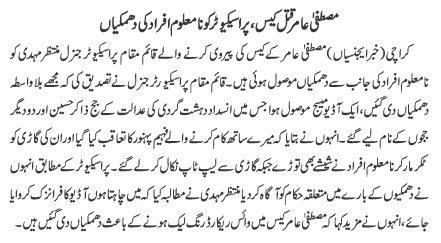 مصطفیٰ عامر قتل کیس، پراسیکیوٹر کو نا معلوم افراد کی دھمکیاں
کراچی (خبر ایجنسیاں) مصطفیٰ عامر کے کیس کی پیروی کرنے والے قائم مقام پراسیکیوٹر جنرل منتظر مہدی کو
نا معلوم افراد کی جانب سے دھمکیاں موصول ہوئی ہیں۔ قائم مقام پراسیکیوٹر جنرل نے تصدیق کی کہ مجھے بلا واسطہ
دھمکیاں دی گئیں، ایک آڈیو میسج موصول ہوا جس میں انسداد دہشت گردی کی عدالت کے جج ذاکر حسین اور دو دیگر
ججوں کے نام لیے گئے۔ انہوں نے بتایا کہ میرے ساتھ کام کرنے والے فہیم پنہور کا تعاقب کیا گیا اور ان کی گاڑی کو
ٹکر مار کر نا معلوم افراد نے شیشے بھی توڑے جبکہ گاڑی سے لیپ ٹاپ نکال کر لے گئے۔ پراسیکیوٹر کے مطابق انہوں
نے دھمکیوں کے بارے میں متعلقہ حکام کو آگاہ کر دیا منتظر مہدی نے مطالبہ کیا کہ میں چاہتا ہوں آڈیو کا فرانزک کروایا
جائے، انہوں نے مزید کہا کہ مصطفیٰ عامر کیس میں وائس ریکارڈنگ لیک ہونے کے باعث دھمکیاں دی گئیں ہیں۔